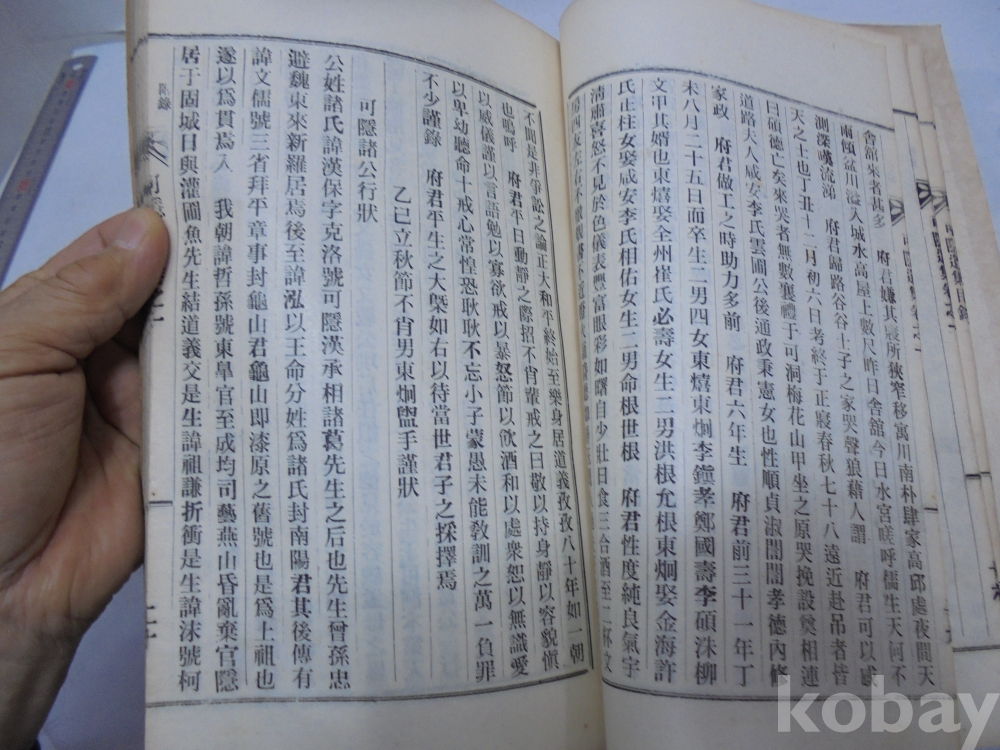 舍舘朱者甚多　府君嫌其扆所狹窄移寓川南朴肆家高邱處夜間天
雨傾盆川溢入城水高屋上數尺昨日舍舘今日水宮嗟呼儒生天何不
測深嘆流涕　府君歸路谷谷士子之家哭聲狼藉人謂　府君可以感
天之士也丁丑十二月初六日考終于正寢春秋七十八遠近赴吊者皆
曰碩德亡矣來哭者無數襄禮于可洞梅花山甲坐之原哭挽設奠相連
道路夫人咸安李氏雲圃公後通政秉憲女也性順貞淑誾誾孝德內修
家政　府君做工之時助力多前　府君六年生　府君前三十一年丁
未八月二十五日而卒生二男四女東熺東炯李鎭孝鄭國壽李碩洙柳
文甲其婿也東熺娶全州崔氏必壽女生二男洪根允根東炯娶金海許
氏正柱女娶咸安李氏相佑女生二男命根世根　府君性度純良氣宇
淸肅喜怒不見於色儀表豐富眼彩如曙自少壯日食三合酒至二杯文
不聞是非爭訟之論正大和平終始至樂身居道義孜孜八十年如一朝
也嗚呼　府君平日動靜之際招不肖輩戒之曰敬以持身靜以容貌愼
以威儀謹以言語勉以寡欲戒以暴怒節以飮酒和以處衆恕以無識愛
以卑幼聽命十戒心常惶恐耿耿不忘小子蒙愚未能敎訓之萬一負罪
不少謹錄　府君平生之大槩如右以待當世君子之採擇焉
乙巳立秋節不肖男東炯盥手謹狀
可隱諸公行狀
公姓諸氏諱漢保字克洛號可隱漢承相諸葛先生之后也先生曾孫忠
避魏東來新羅居焉後至諱泓以王命分姓爲諸氏封南陽君其後有
諱文儒號三省拜平章事封龜山君龜山卽漆原之舊號也是爲上祖也
遂以爲貫焉入　我朝諱哲孫號東皐官至成均司藝燕山昏亂棄官隱
居于固城日與灌圃魚先生結道義交是生諱祖謙折衝是生諱沫號柯
附錄
kobay